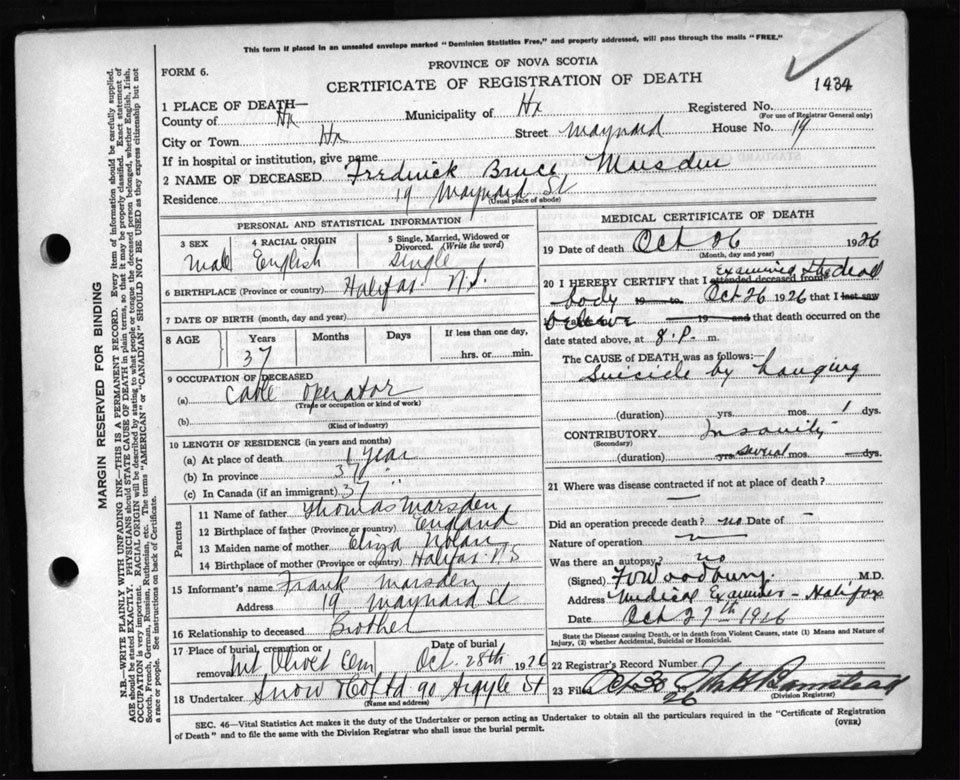 This form if placed in an unsealed envelope marked "Dominion Statistics Free," and properly addressed, will pass through the mails "FREE."
PROVINCE OF NOVA SCOTIA
FORM 6.
CERTIFICATE OF REGISTRATION OF DEATH
1434
1 PLACE OF DEATH—
County of Hx
Municipality of Hx
Registered No.
(For use of Registrar General only)
City or Town Hx
Street Maynard
House No. 19
If in hospital or institution, give name
2 NAME OF DECEASED Fredrick Bruce Marsden
Residence 19 Maynard St
(Usual place of abode)
PERSONAL AND STATISTICAL INFORMATION
3 SEX
Male
4 RACIAL ORIGIN
English
5 Single, Married, Widowed or
Divorced. (Write the word)
Single
6 BIRTHPLACE (Province or country) Halifax N.S.
7 DATE OF BIRTH (month, day and year)
8 AGE
Years
Months
Days
If less than one day,
37
hrs. or min.
9 OCCUPATION OF DECEASED
(a) Cable operator
(Trade or occupation or kind of work)
(b)
(Kind of industry)
10 LENGTH OF RESIDENCE (in years and months)
(a) At place of death 1 year
(b) In province 37 "
(c) In Canada (if an immigrant) 37 "
Parents
11 Name of father Thomas Marsden
12 Birthplace of father (Province or country) England
13 Maiden name of mother Eliza Nolan
14 Birthplace of mother (Province or country) Halifax N S
15 Informant's name Frank Marsden
Address 19 Maynard St
16 Relationship to deceased Brother
17 Place of burial, cremation or
removal Mt Olivet Cem
Date of burial
Oct. 28th 1926
18 Undertaker Snow & Co Ltd 90 Argyle St
(Name and address)
MEDICAL CERTIFICATE OF DEATH
19 Date of death Oct 26 1926
(Month, day and year)
examined the dead
20 I HEREBY CERTIFY that I attended deceased from
body 19 to Oct 26 1926 that I last saw
19 and that death occurred on the
date stated above, at 8. P. m.
The CAUSE of DEATH was as follows:
Suicide by hanging
(duration) yrs. mos. 1 dys.
CONTRIBUTORY Insanity
(Secondary)
(duration) yrs. several mos. dys.
21 Where was disease contracted if not at place of death?
—
Did an operation precede death? no Date of –
Nature of operation —
Was there an autopsy? no
(Signed) Woodbury. M.D.
Address Medical Examiner – Halifax
Date Oct 27th 1926
State the Disease causing Death, or in death from Violent Causes, state (1) Means and Nature of
Injury, (2) whether Accidental, Suicidal or Homicidal.
22 Registrar's Record Number
23 Filed Oct 28 26
(Division Registrar)
SEC. 46—Vital Statistics Act makes it the duty of the Undertaker or person acting as Undertaker to obtain all the particulars required in the "Certificate of Registration
of Death" and to file the same with the Division Registrar who shall issue the burial permit.
(OVER)
MARGIN RESERVED FOR BINDING
N.B.—WRITE PLAINLY WITH UNFADING INK—THIS IS A PERMANENT RECORD. Every item of information should be carefully supplied.
AGE should be stated EXACTLY. PHYSICIANS should STATE CAUSE OF DEATH in plain terms, so that it may be properly classified. Exact statement of
OCCUPATION is very important. RACIAL ORIGIN will be described by stating to what people or tongue the deceased person belonged, whether English, Irish,
Scotch, French, German, Russian, Ruthenian, etc. The terms "AMERICAN" or "CANADIAN" SHOULD NOT BE USED as they express citizenship but not
a race or people. See instructions on back of Certificate.